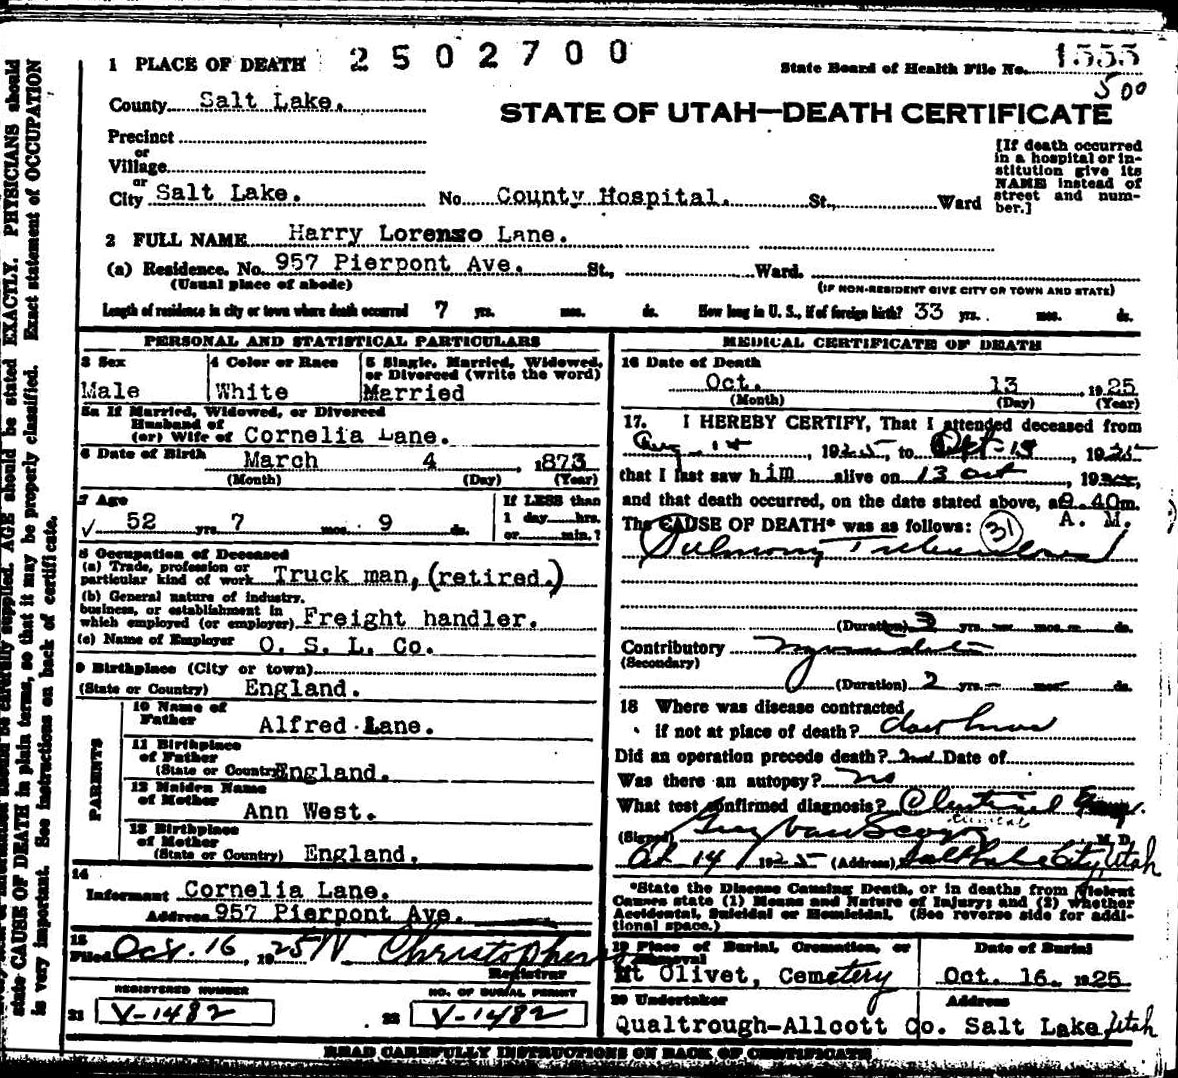 1 PLACE OF DEATH 2502700
State Board of Health File No. 1555
500
County Salt Lake.
STATE OF UTAH—DEATH CERTIFICATE
Precinct
or
Village
or
City Salt Lake. No. County Hospital. St., Ward
[If death occurred
in a hospital or in-
stitution give its
NAME instead of
street and num-
ber.]
2 FULL NAME Harry Lorenso Lane.
(a) Residence. No. 957 Pierpont Ave. St., Ward.
(Usual place of abode)
(IF NON-RESIDENT GIVE CITY OR TOWN AND STATE)
Length of residence in city or town where death occurred 7 yrs. mos. ds. How long in U. S., if of foreign birth? 33 yrs. mos. ds.
PERSONAL AND STATISTICAL PARTICULARS
3 Sex
Male
4 Color or Race
White
5 Single, Married, Widowed,
or Divorced (write the word)
Married
5a If Married, Widowed, or Divorced
Husband of
(or) Wife of Cornelia Lane.
6 Date of Birth March 4, 1873
(Month) (Day) (Year)
7 Age
52 yrs. 7 mos. 9 ds.
If LESS than
1 day hrs.
or min.?
8 Occupation of Deceased
(a) Trade, profession or
particular kind of work Truck man, (retired.)
(b) General nature of industry,
business, or establishment in
which employed (or employer) Freight handler.
(c) Name of Employer O. S. L. Co.
9 Birthplace (City or town)
(State or Country) England.
PARENTS
10 Name of
Father Alfred Lane.
11 Birthplace
of Father
(State or Country) England.
12 Maiden Name
of Mother Ann West.
13 Birthplace
of Mother
(State or Country) England.
14
Informant Cornelia Lane.
Address 957 Pierpont Ave.
15
Filed Oct. 16, 1925 W. Christopherson
Registrar
REGISTERED NUMBER
21 V-1482
NO. OF BURIAL PERMIT
22 V-1482
MEDICAL CERTIFICATE OF DEATH
16 Date of Death
Oct. 13 1925
(Month) (Day) (Year)
17. I HEREBY CERTIFY, That I attended deceased from
Aug. 14, 1925, to Oct-13, 1925
that I last saw him alive on 13 Oct, 192
and that death occurred, on the date stated above, at 9.40m.
A. M.
The CAUSE OF DEATH* was as follows: 31
Pulmonary Tuberculosis
(Duration) 3 yrs. mos. ds.
Contributory Myocarditis
(Secondary)
(Duration) 2 yrs. mos. ds.
18 Where was disease contracted
if not at place of death?
Did an operation precede death? Date of
Was there an autopsy? no
What test confirmed diagnosis?
clinical
(Signed) M. D.
Oct 14 1925 (Address) Salt Lake City, Utah
*State the Disease Causing Death, or in deaths from Violent
Causes state (1) Means and Nature of Injury; and (2) whether
Accidental, Suicidal or Homicidal. (See reverse side for addi-
tional space.)
19 Place of Burial, Cremation, or
Removal
Mt Olivet, Cemetery
Date of Burial
Oct. 16. 1925
20 Undertaker
Qualtrough-Allcott Co.
Address
Salt Lake, Utah
READ CAREFULLY INSTRUCTIONS ON BACK OF CERTIFICATE
should be carefully supplied. AGE should be stated EXACTLY. PHYSICIANS should
state CAUSE OF DEATH in plain terms, so that it may be properly classified. Exact statement of OCCUPATION
is very important. See instructions on back of certificate.